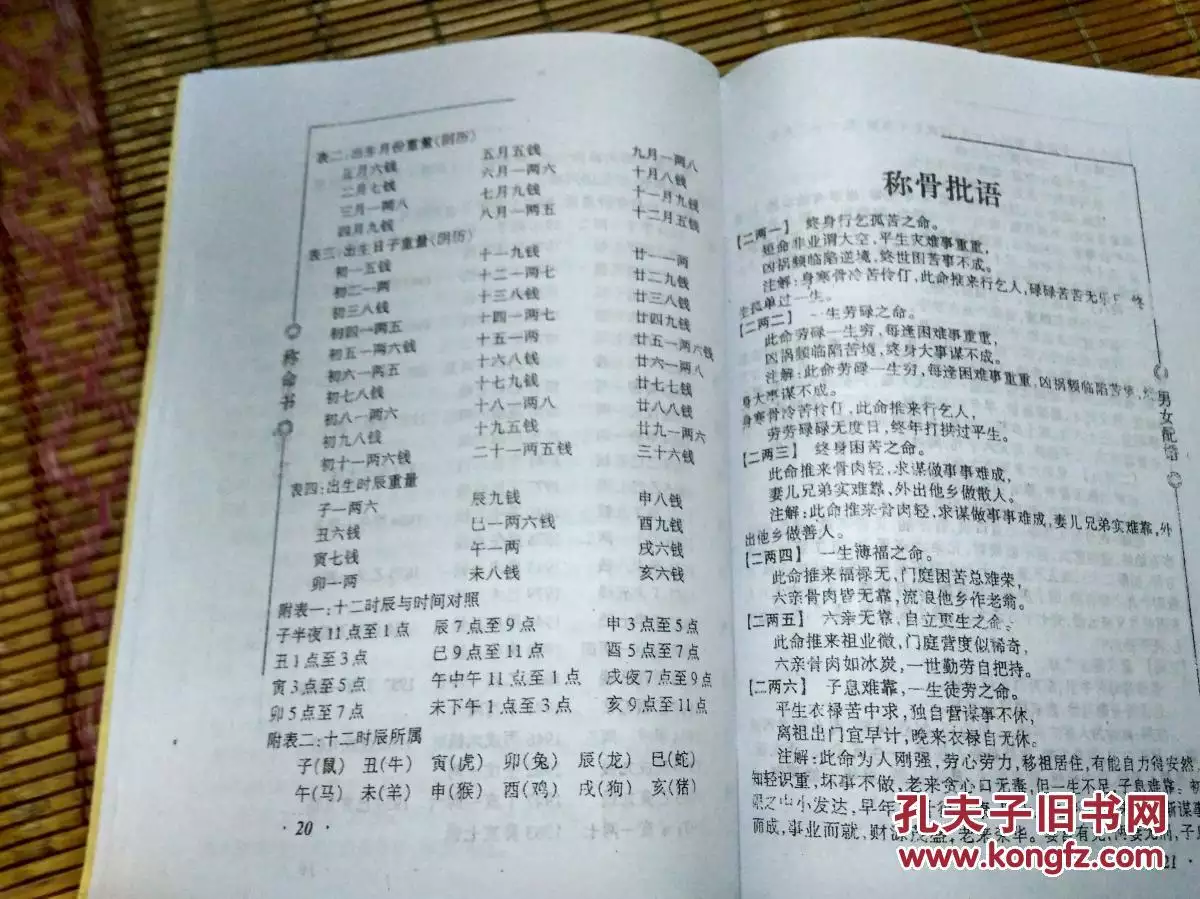 表二:出生月份重量(阴历)
正月六钱 五月五钱 九月一两八
二月七钱 六月一两六 十月八钱
三月一两八 七月九钱 十一月九钱
四月九钱 八月一两五 十二月五钱
表三:出生日子重量(阴历)
初一五钱 十一九钱 廿一一两
初二一两 十二一七 廿二九钱
初三八钱 十三八钱 廿三八钱
初四一两五 十四一两七 廿四九钱
初五一两六钱 十五一两 廿五一两六钱
初六一两五 十六八钱 廿六一两八
初七八钱 十七九钱 廿七七钱
初八一两六 十八一两八 廿八八钱
初九八钱 十九五钱 廿九一两六
初十一两六钱 二十一两五钱 三十六钱
表四:出生时辰重量
子一两六 辰九钱 申八钱
丑六钱 巳一两六钱 酉九钱
寅七钱 午一两 戌六钱
卯一两 未八钱 亥六钱
附表一:十二时辰与时间对照
子半夜11点至1点 辰7点至9点 申3点至5点
丑1点至3点 巳9点至11点 酉5点至7点
寅3点至5点 午中午11点至1点 戌夜7点至9点
卯5点至7点 未下午1点至3点 亥9点至11点
附表二:十二时辰所属
子(鼠) 丑(牛) 寅(虎) 卯(兔) 辰(龙) 巳(蛇)
午(马) 未(羊) 申(猴) 酉(鸡) 戌(狗) 亥(猪)
·20·
称命书
称骨批语
【二两一】 终身行乞孤苦之命。
短命非业谓大空,平生灾难事重重,
凶祸频临陷逆境,终世困苦事不成。
注解:身寒骨冷苦伶仃,此命推来行乞人,碌碌苦苦无 终
生孤单过一生。
【二两二】 一生劳碌之命。
此命劳碌一生穷,每逢困难事重重,
凶祸频临陷苦境,终身大事谋不成。
注解:此命劳碌一生穷,每逢困难事重重,凶祸频临陷苦
身大事谋不成。
身寒骨冷苦伶仃,此命推来行乞人,
劳劳碌碌无度日,终年打拱过平生。
【二两三】 终身困苦之命。
此命推来骨肉轻,求谋做事事难成,
妻儿兄弟实难靠,外出他乡做散人。
注解:此命推来骨肉轻,求谋做事事难成,妻儿兄弟实难靠,外
出他乡做善人。
【二两四】 一生薄福之命。
此命推来福禄无,门庭困苦总难荣,
六亲骨肉皆无靠,流浪他乡作老翁。
【二两五】 六亲无靠,自立更生之命。
此命推来祖业微,门庭营度似稀奇,
六亲骨肉如冰炭,一世勤劳自把持。
【二两六】 子息难靠,一生徒劳之命。
平生衣禄苦中求,独自营谋事不休,
离祖出门宜早计,晚来衣禄自无休。
注解:此命为人刚强,劳心劳力,移祖居住,有能自力得安然,
知轻识重,坏事不做,老来贪心口无毒,但一生不足,子息难靠;初
限之中小发达,早年
而成,事业而就,财源茂盛,老来荣华。
21·
男女配婚
孔夫子旧书网
www.kongfz.com